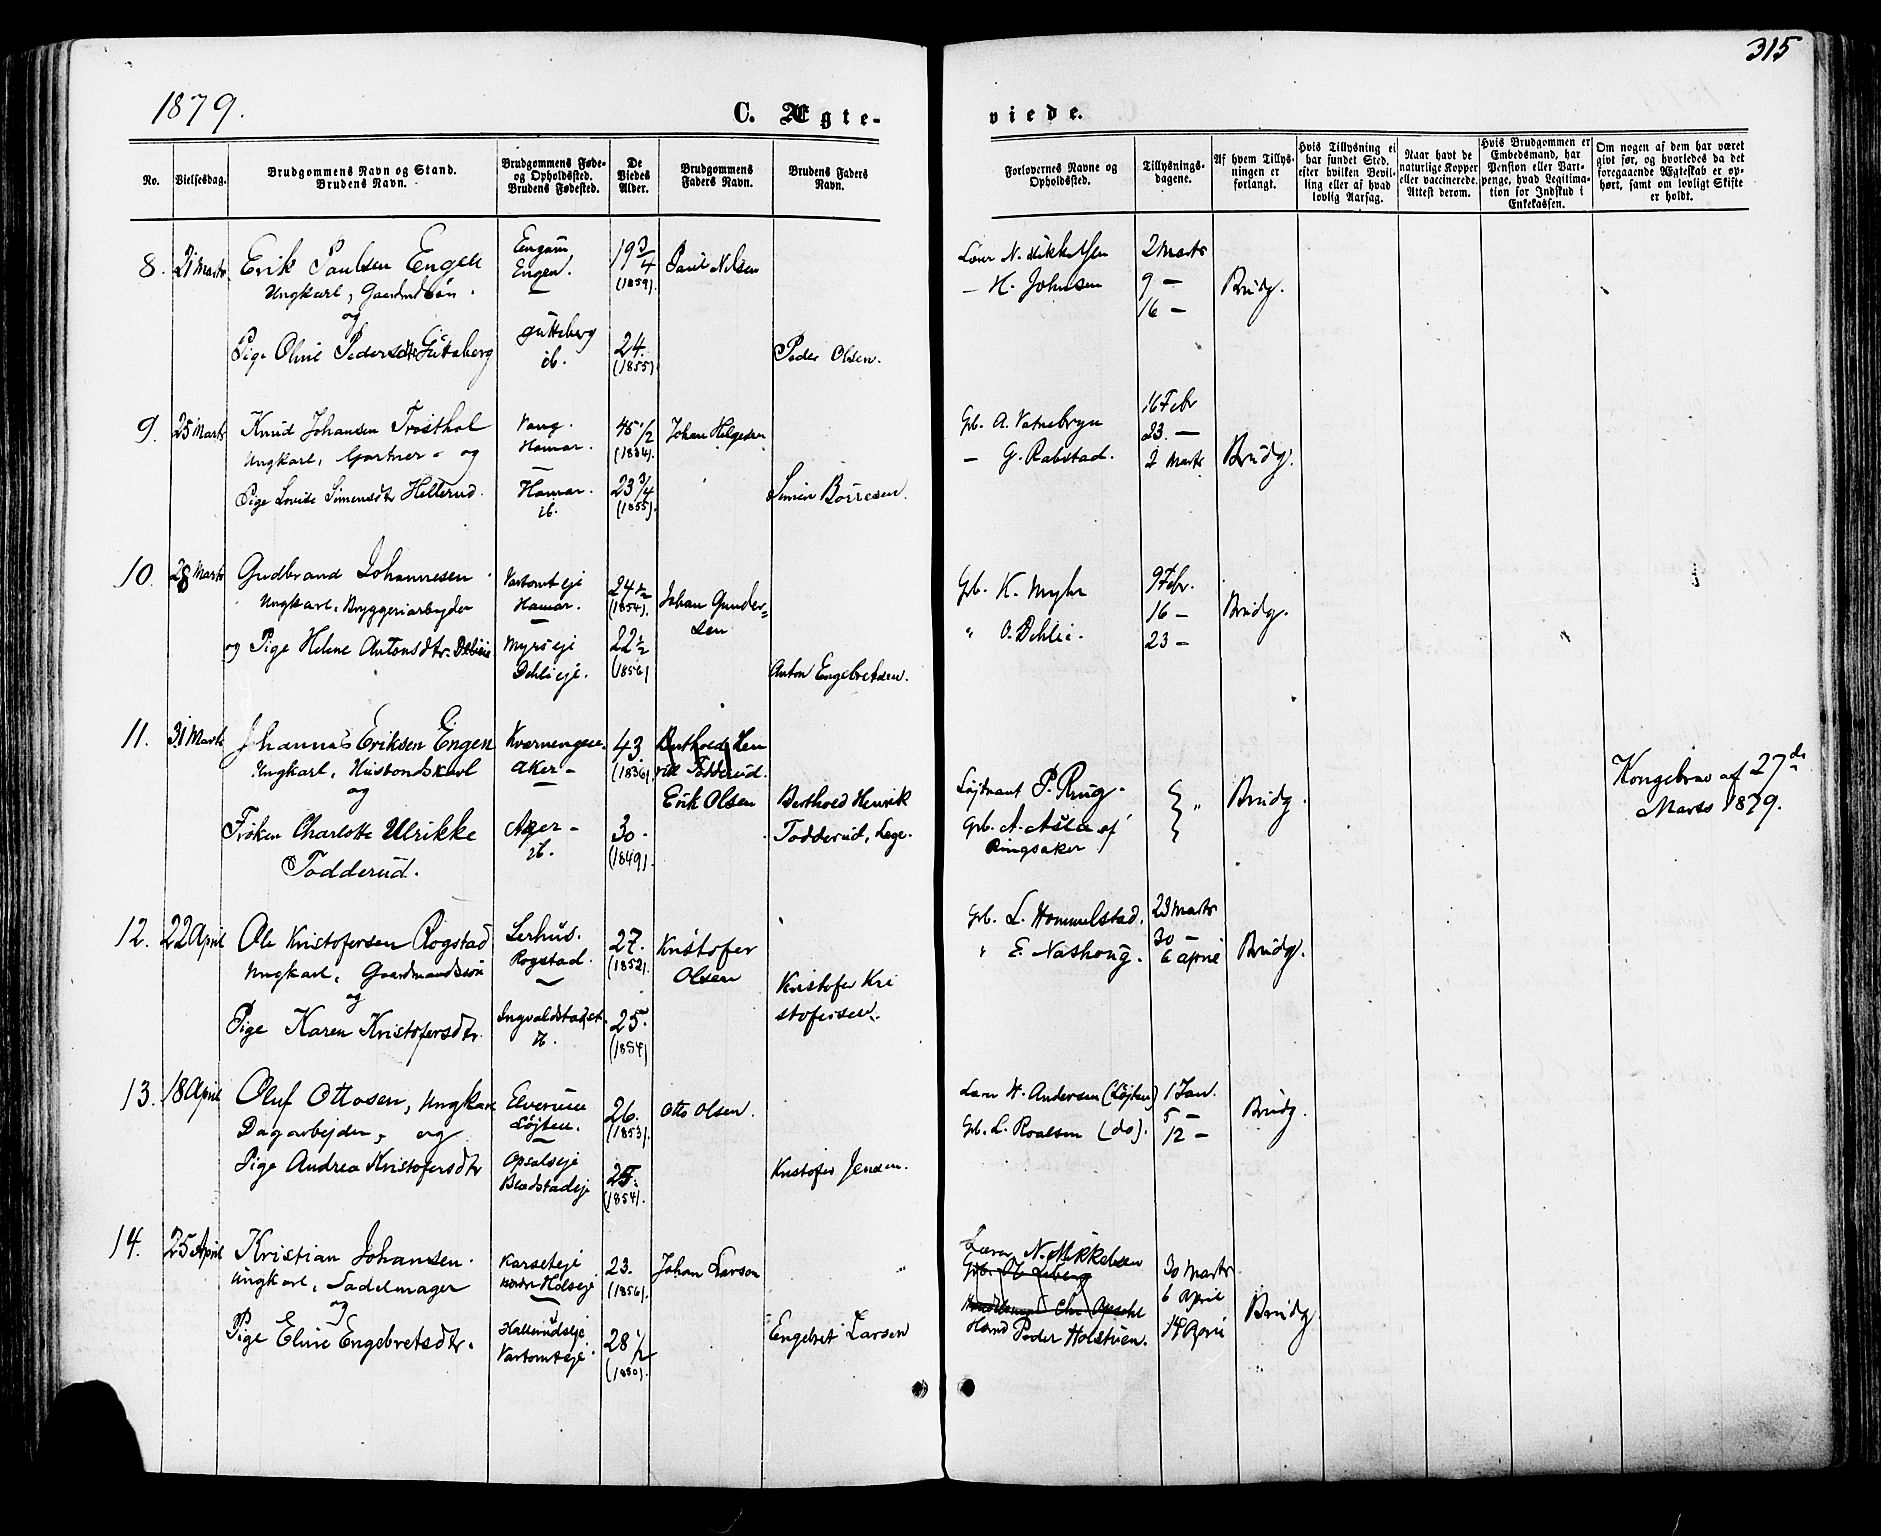 315
1879.
C. Ægte-
viede.
No.
Vielsesdag.
Brudgommens Navn og Stand.
Brudens Navn.
Brudgommens Føde-
og Opholdssted.
Brudens Fødested.
De
Viedes
Alder.
Brudgommens
Faders Navn.
Brudens Faders
Navn.
Forlovernes Navne og
Opholdssted.
Tillysnings-
dagene.
Af hvem Tillys-
ningen er
forlangt.
Hvis Tillysning ei
har fundet Sted,
efter hvilken Bevil-
ling eller af hvad
lovlig Aarsag.
Naar havt de
naturlige Kopper
eller vaccinerede.
Attest derom.
Hvis Brudgommen er
Embedsmand, har
Pension eller Vart-
penge, hvad Legitima-
tion for Indskud i
Enkekassen.
Om nogen af dem har været
givt før, og hvorledes da det
foregaaende Ægteskab er op-
hørt, samt om lovligt Skifte
er holdt.
8. 21 Marts Erik Paulsen Engen
Ungkarl, Gaardmdsøn.
og
Pige Oline Pedersdtr Gutaberg
Engen.
ib.
19 3/4
(1859).
24.
(1855)
Paul Nilsen
Peder Olsen.
Lærer N. Mikkelsen
— H. Johnsen
2 Marts
9 —
16 —
Brudg.
9. 25 Marts Knud Johansen Trosthol
Ungkarl, Gartner - og
Pige Lovise Simensdtr Hellerud.
Vang.
Hamar.
Hamar.
ib.
45 1/2
(1834).
23 3/4
(1855).
Johan Helgesen
Simen Borresen.
Gb. A. Vatnebryn
— G. Rabstad.
16 Febr
23. —
2 Marts
Brudg.
10. 28 Marts Gudbrand Johannesen
Ungkarl, Bryggeriarbejder
og Pige Helene Antonsdtr. Dehlie
Vartomt eje
Hamar.
Myrs eje
Dehli eje.
24 1/2
(1854).
22 1/2
(1856)
Johan Gunder=
sen
Anton Engebretsen.
Gb. K. Myhr
" O. Dehlie.
9 Febr.
16 —
23 —
Brudg.
11. 31 Marts Johannes Eriksen Engen
Ungkarl, Husbondskarl
og
Frøken Charlotte Ulrikke
Todderud.
Kværnengen.
Aker -
Aker -
ib.
43
(1836)
30 -
(1849).
Berthold Hen
rik Todderud.
Erik Olsen
Berthold Henrik
Todderud, Læge.
Løjtnant P. Krug.
Gb. A. Alm af
Ringsaker
"
Brudg.
Kongebrev af 27de
Marts 1879.
12. 22 April Ole Kristofersen Rogstad
Ungkarl, Gaardmandssøn
og
Pige Karen Kristofersdtr.
Lerhus.
Rogstad.
ib.
27.
(1852).
25.
(1854)
Kristofer
Olsen
Kristofer Kri
stofersen.
Gb. L. Hommelstad.
" E. Nashoug.
23 Marts
30 —
6 April
Brudg.
13. 18 April Oluf Ottosen, Ungkarl
Dagarbejder, og
Pige Andrea Kristofersdtr
Elverum
Løjten.
Opsalseje
25.
26.
(1853).
(1854).
Otto Olsen.
Kristofer Jensen.
Lærer H. Andersen (Løjten)
Gb. L. Roalsen (do).
1 Jan.
5 —
12 —
Brudg.
14. 25 April Kristian Johansen.
Ungkarl, Sadelmager
og
Pige Eline Engebretsdtr.
Karseteje
Vartomteje.
23.
(1856).
28 1/2
(1850).
Johan Larsen
Engebret Larsen
Lærer N. Mikkelsen
Peder Holstuen.
30 Marts
6 April
14 April
Brudg.